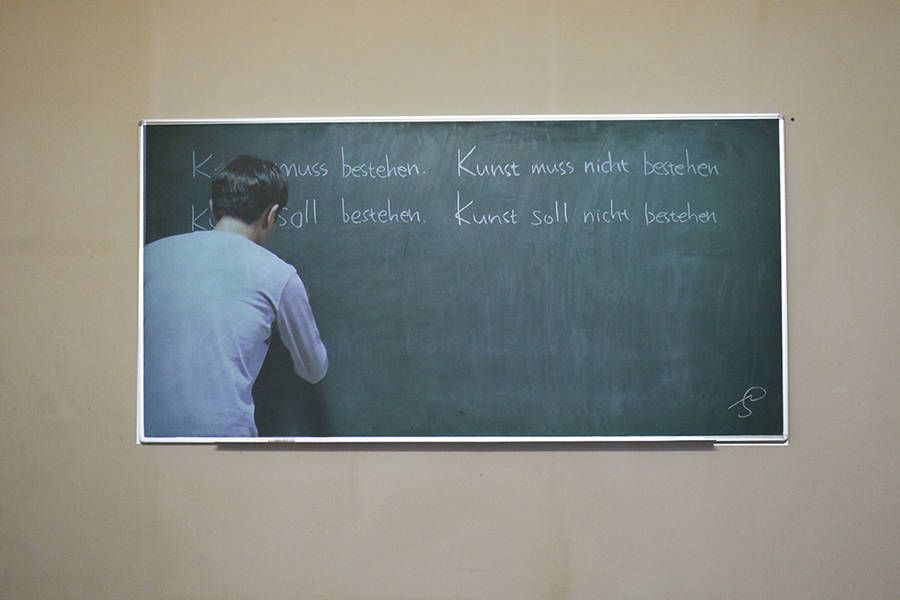 muss bestehen. Kunst muss nicht bestehen
soll bestehen. Kunst soll nicht bestehen